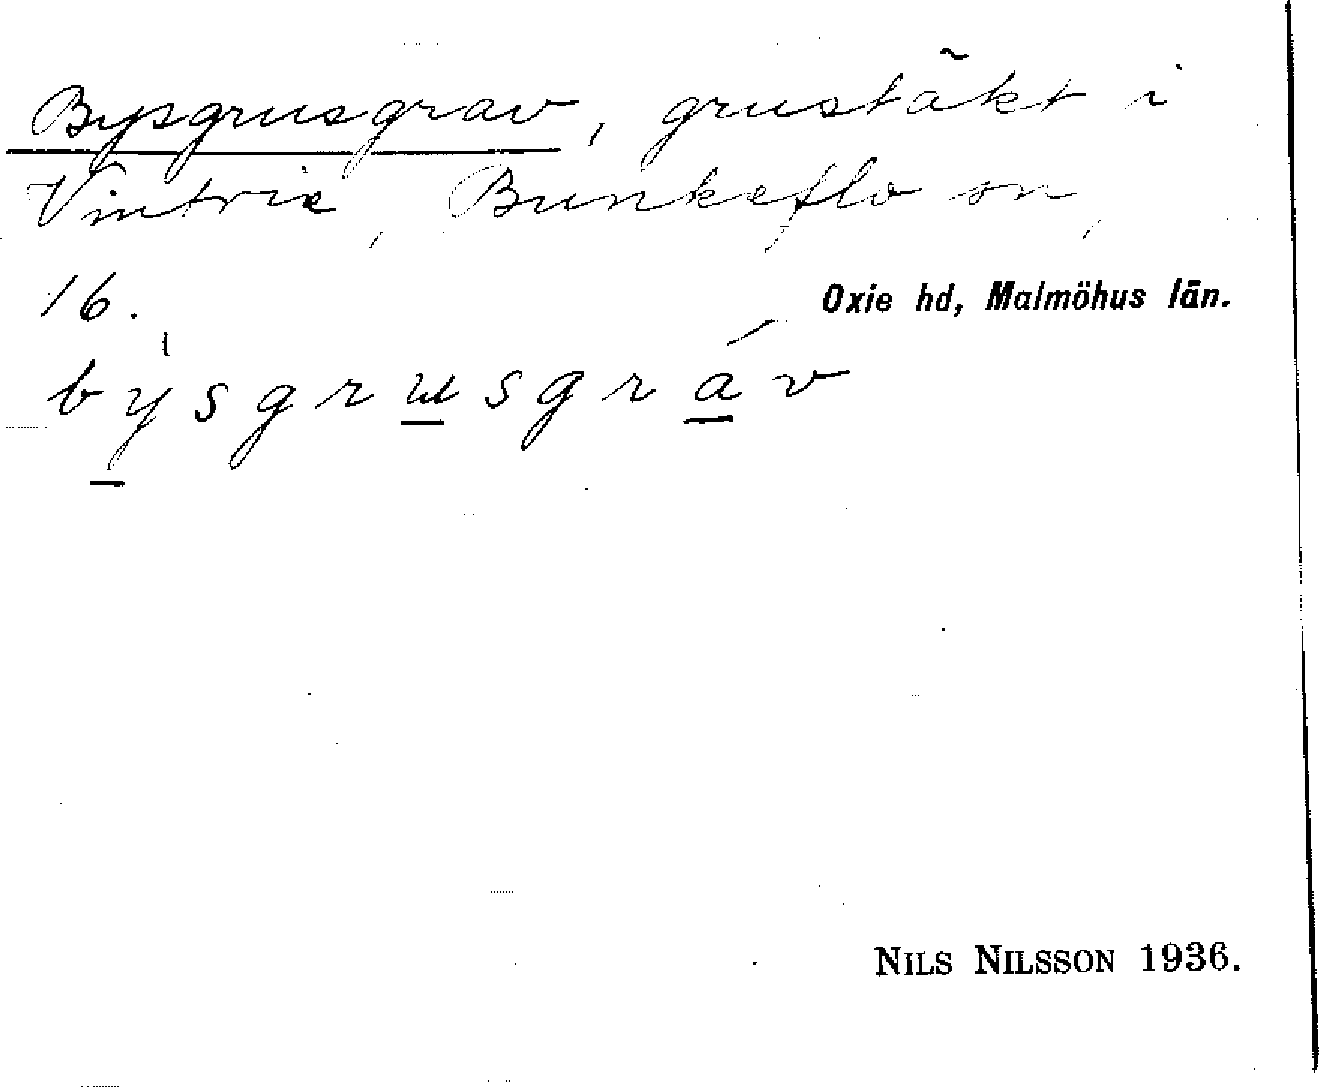 Bysgrusgrav, grustäkt i
Vintrie, Bunkeflo sn,
16.
Oxie hd, Malmöhus län.
býsgrusgráv
NILS NILSSON 1936.